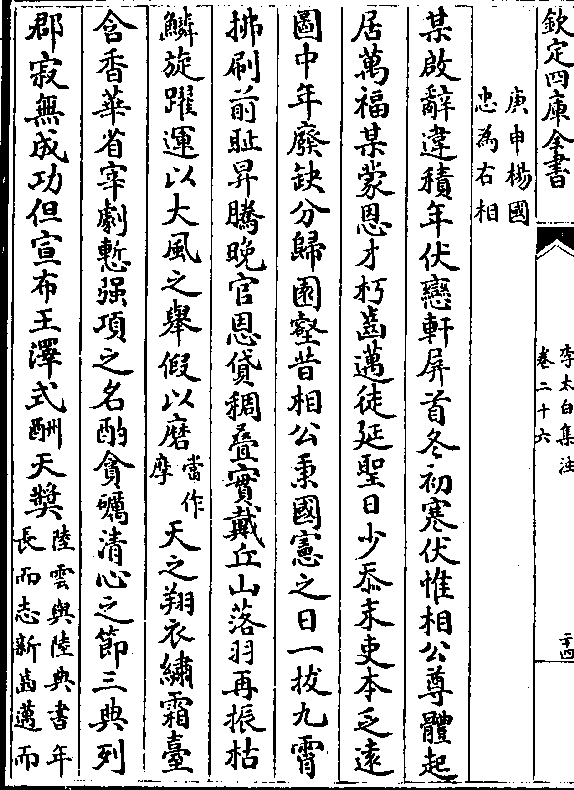 欽定四庫全書
李太白集注
卷二十六
二十四
庚申楊國
忠為右相
某啟辭違積年伏戀軒屏首冬初寒伏惟相公尊體起
居萬福某蒙恩才朽齒邁徒延聖日少忝末吏本乏遠
圖中年廢缺分歸園壑昔相公秉國憲之日一拔九霄
拂刷前恥昇騰晚官恩貸稠疊實戴丘山落羽再振枯
鱗旋躍運以大風之舉假以磨
當作
摩
天之翔衣繡霜臺
含香華省宰劇慙强項之名酌貪礪清心之節三典列
郡寂無成功但宣布王澤式酬天獎
陸雲與陸典書年
長而志新齒邁而